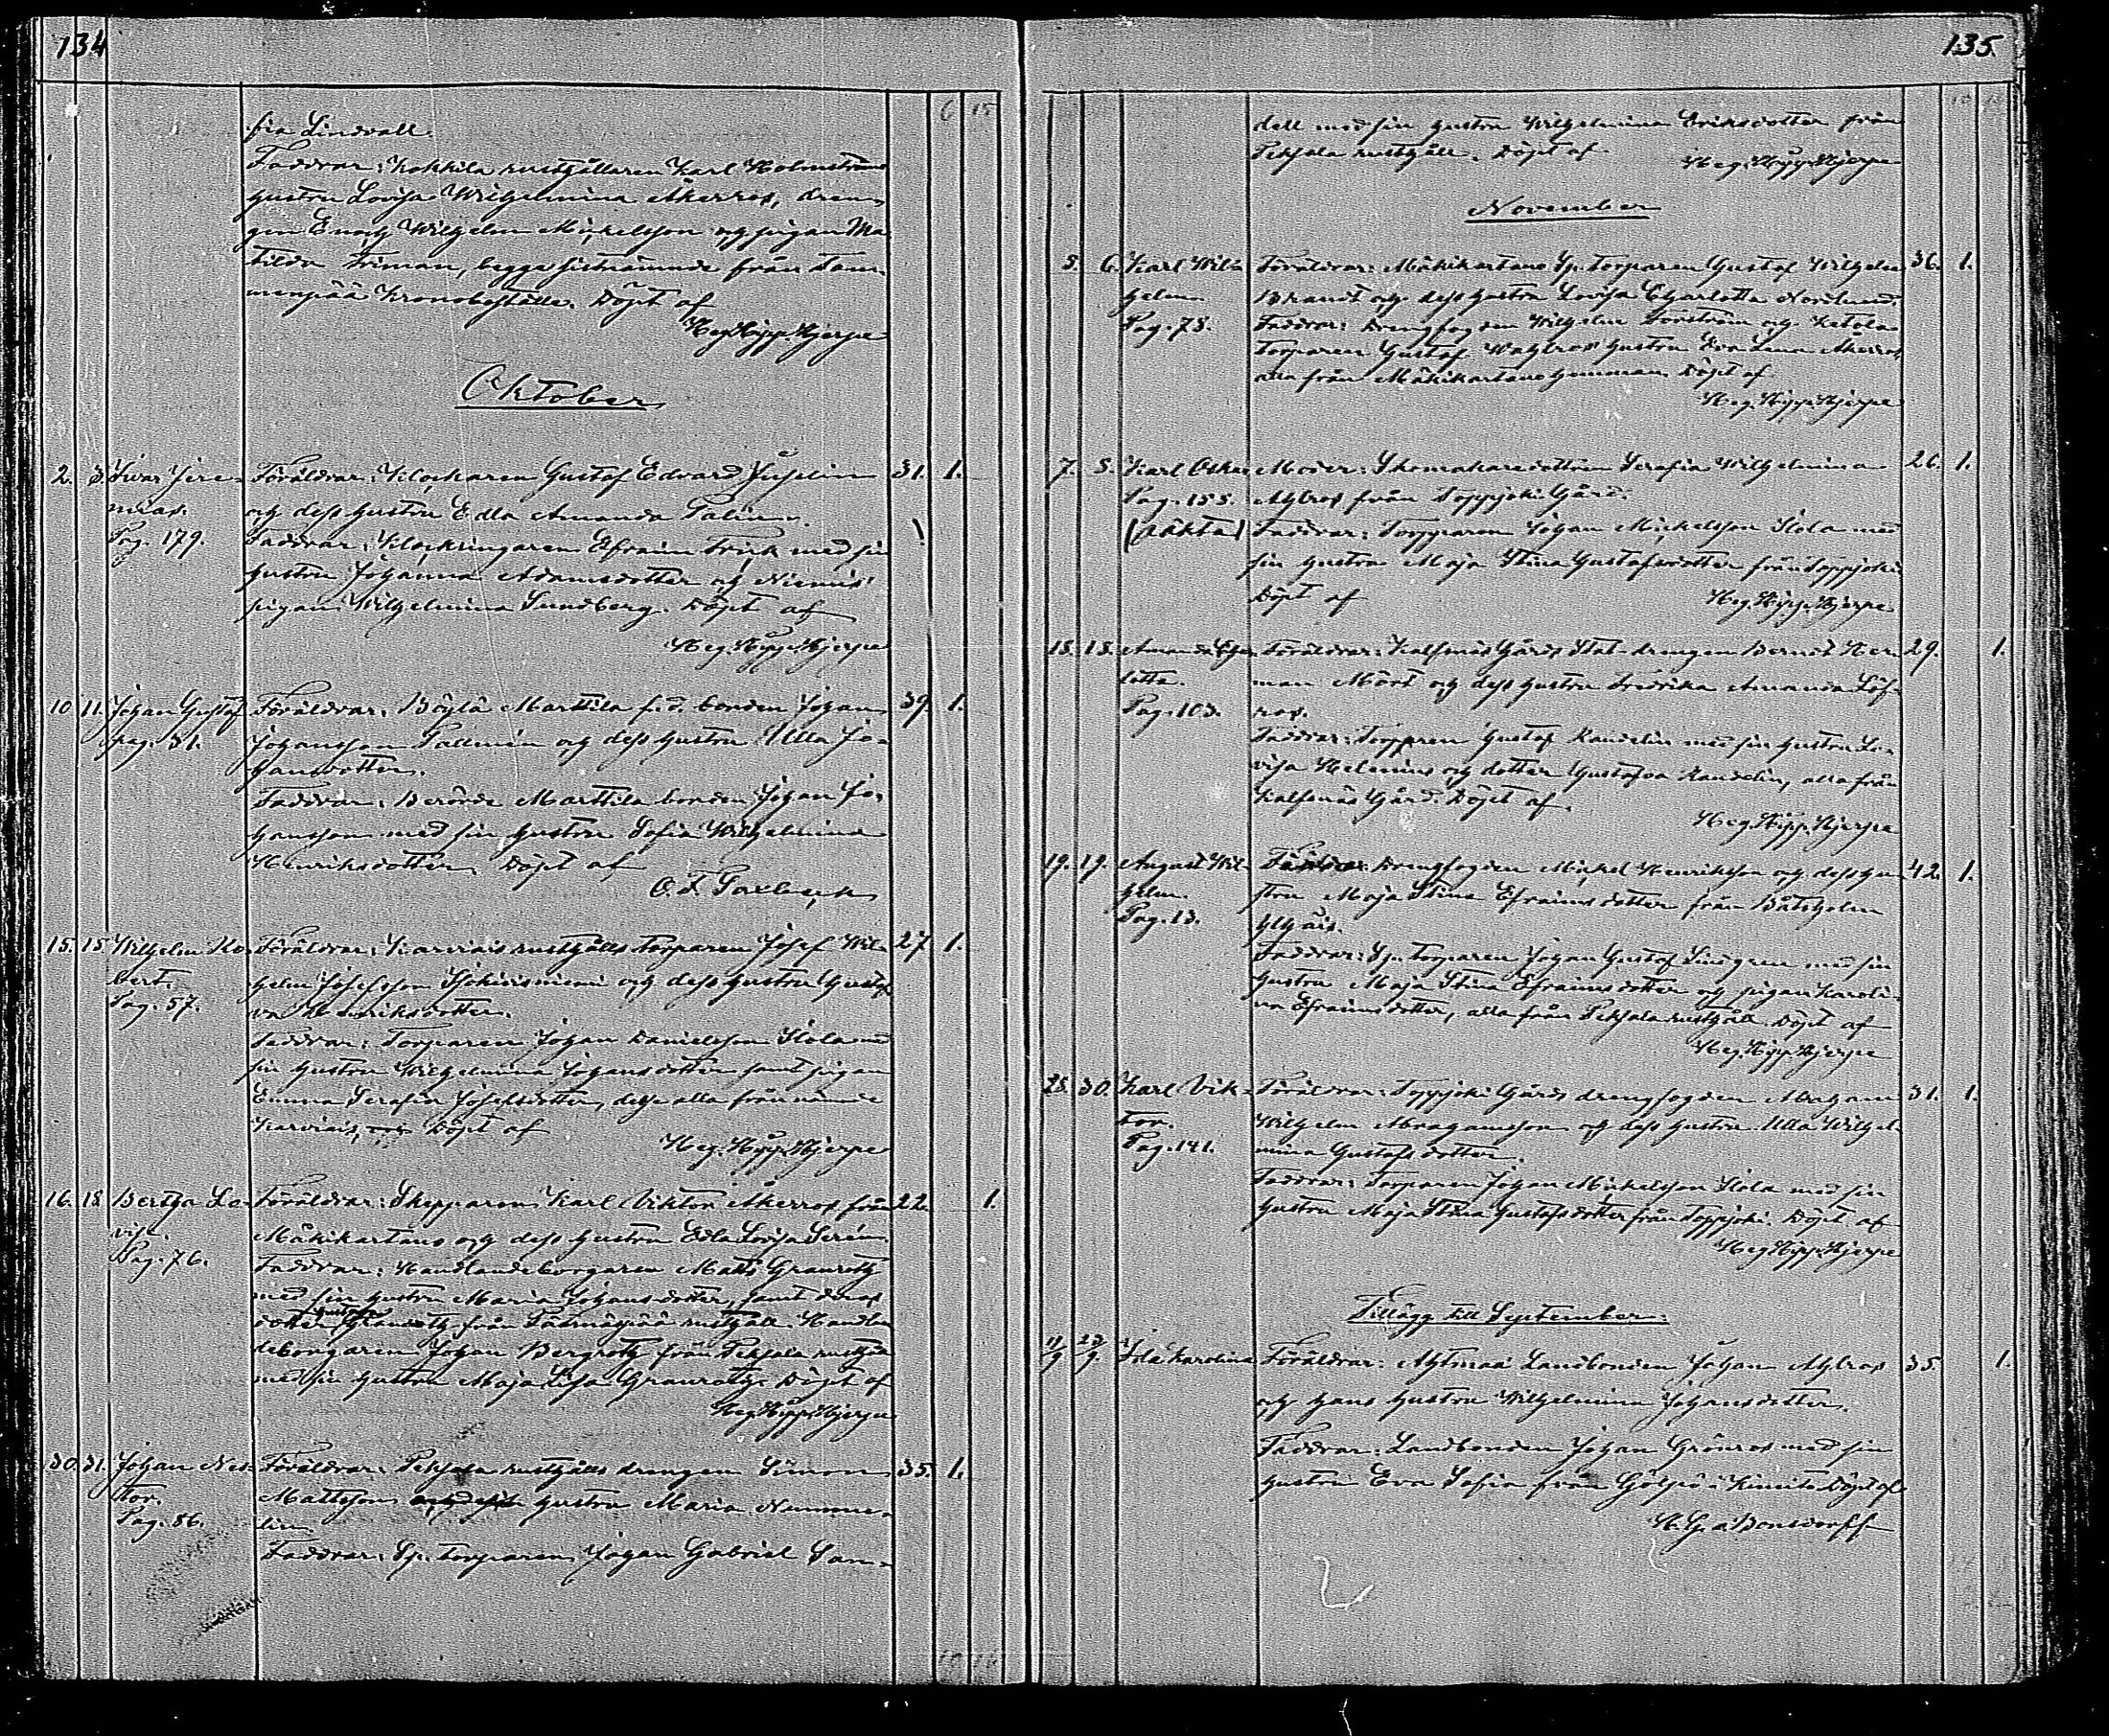 134
fia Lindvall.
Faddrar: Kokkila rusthållaren Karl Holmströms
hustru Lovisa Wilhelmina Åkerros, dren-
gen Enoch Wilhelm Michelsson och pigan Ma-
tilda Friman, begge sistnämnde från Tam-
menpää Kronoboställe. Döpt af
Heg. Hipp. Hjerpe
Oktober
2. 3. Ivar Jere- Föräldrar: Klockaren Gustaf Edvard Juselin 31. 1.
mias. och dess hustru Edla Amanda Palin.
Pag. 179. Faddrar: Klockringaren Efraim Frick med sin
hustru Johanna Adamsdotter och Niemis
pigan Wilhelmina Sundberg. Döpt af
Heg. Hipp. Hjerpe
10. 11. Johan Gustaf Föräldrar: Böylä Marttila f.d. bonden Johan 39. 1.
pag. 31. Johansson Pallmén och dess hustru Ulla Jo-
hansdotter.
Faddrar: Marttila bonden Johan Jo-
hansson med sin hustru Sofia Wilhelmina
Henriksdotter. Döpt af
15. 15. Wilhelm Ro- Föräldrar: Karviais rusthålls torparen Josef Wil- 27. 1.
bert. helm Josefsson och dess hustru Gusta-
Pag. 57. va Henriksdotter.
Faddrar: Torparen Johan Danielsson Ilola med
sin hustru Wilhelmina Johansdotter samt pigan
Emma Serafia Josefsdotter, desse alla från nämnde
Karviais, Döpt af
Heg. Hipp. Hjerpe
16. 18. Bertha Lo- Föräldrar: Skepparen Karl Viktor Åkerros från 22. 1.
visa. Mäkikartano och dess hustru Edla Lovisa Serén.
Pag. 76. Faddrar: Handlandeborgaren Matts Granroth
med sin hustru Maria Johansdotter, samt deras
dotter Gustava Granroth från rusthåll. Handlan-
deborgaren Johan Bergroth från Pehjala rusthåll
med sin hustru Maja Lisa Granroth. Döpt af
Heg. Hipp. Hjerpe
30. 31. Johan Nes- Föräldrar: Pehjala rusthålls drengen Simon 35. 1.
tor. Mattsson och dess hustru Maria Numme-
Pag. 86. lin
Faddrar: Sp. torparen Johan Gabriel San-
135.
dell med sin hustru Wilhelmina Eriksdotter från
Pehjala rusthåll. Döpt af Heg. Hipp. Hjerpe
November
5. 6. Karl Wil- Föräldrar: Mäkikartano Sp. torparen Gustaf Wilhelm 36. 1.
helm. Brandt och dess hustru Lovisa Charlotta Nordlund.
Pag. 78. Faddrar: Drengfogden Wilhelm Forström och Ketola
torparen Gustaf Wahlros hustru Eva Lena Åkerros
alla från Mäkikartano Döpt af
Heg. Hipp. Hjerpe
7. 8. Karl Oskar Moder: Skomakaredottren Serafia Wilhelmina 26. 1.
Pag. 155. Ahlros från Toppjoki Gård.
(oäkta) Faddrar: Torpparen Johan Michelsson Ilola med
sin hustru Maja Stina Gustafsdotter från Toppjoki
Döpt af Heg. Hipp. Hjerpe
18. 18. Amanda Char- Föräldrar: Kalfnäs Gårds Stat-drengen Berndt Her- 29. 1.
lotta. man Mört och dess hustru Fredrika Amanda Löf-
Pag. 103. ros.
Faddrar: Torparen Gustaf Randelin med sin hustru Lo-
visa Helenius och dotter Gustafva Randelin, alla från
Kalfsnäs Gård. Döpt af
Heg. Hipp. Hjerpe
19. 19. August Wil- Föräldrar: Drengfogden Michel Henriksson och dess hu- 42. 1.
helm. stru Maja Stina Efraimsdotter från Båtsholm
Pag. 13.
Faddrar: Sp. torparen Johan Gustaf Lindgren med sin
hustru Maja Stina Efraimsdotter och pigan Karoli-
na Efraimsdotter, alla från Pehjala rusthåll. Döpt af
Heg. Hipp. Hjerpe
28. 30. Karl Vik- Föräldrar: Toppjoki Gårds drengfogden Abraham 31. 1.
tor. Wilhelm Abrahamsson och dess hustru Ulla Wilhel-
Pag. 141. mina Gustafsdotter.
Faddrar: Torparen Johan Michelsson Ilola med sin
hustru Maja Stina Gustafsdotter från Toppjoki. Döpt af
Heg. Hipp. Hjerpe
Tillägg till September:
Ida Karolina Föräldrar: Ahtmaa Landbonden Johan Ahlros 35. 1.
och hans hustru Wilhelmina Johansdotter.
Faddrar: Landbonden Johan Grönros med sin
hustru Eva Sofia från i Kimito Döpt af
Bonsdorff